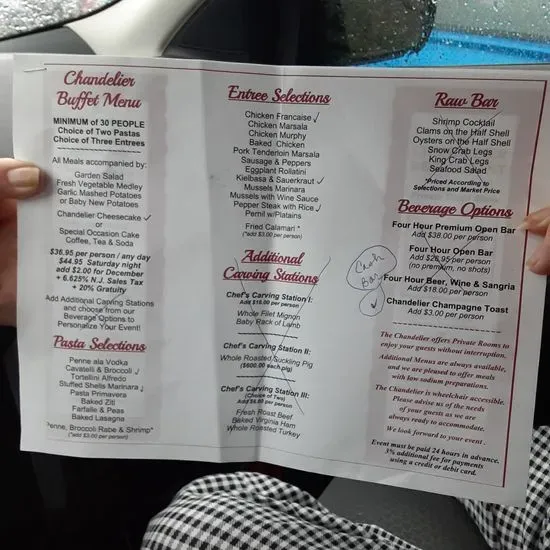 Chandelier
Buffet Menu
MINIMUM of 30 PEOPLE
Choice of Two Pastas
Choice of Three Entrees
All Meals accompanied by:
Garden Salad
Fresh Vegetable Medley
Garlic Mashed Potatoes
or Baby New Potatoes
Chandelier Cheesecake ✓
or
Special Occasion Cake
Coffee, Tea & Soda
$36.95 per person / any day
$44.95 Saturday night
add $2.00 for December
+ 6.625% N.J. Sales Tax
+ 20% Gratuity
Add Additional Carving Stations
and choose from our
Beverage Options to
Personalize Your Event!
Pasta Selections
Penne ala Vodka
Cavatelli & Broccoli ✓
Tortellini Alfredo
Stuffed Shells Marinara ✓
Pasta Primavera
Baked Ziti
Farfalle & Peas
Baked Lasagna
Penne, Broccoli Rabe & Shrimp*
(*add $3.00 per person)
Entree Selections
Chicken Francaise ✓
Chicken Marsala
Chicken Murphy
Baked Chicken
Pork Tenderloin Marsala
Sausage & Peppers
Eggplant Rollatini
Kielbasa & Sauerkraut ✓
Mussels Marinara
Mussels with Wine Sauce
Pepper Steak with Rice ✓
Pernil w/Platains
Fried Calamari *
(*add $3.00 per person)
Additional
Carving Stations
Chef's Carving Station I:
Add $18.00 per person
Whole Filet Mignon
Baby Rack of Lamb
Chef's Carving Station II:
Whole Roasted Suckling Pig
($600.00 each pig)
Chef's Carving Station III:
(Choice of Two)
Add $6.00 per person
Fresh Roast Beef
Baked Virginia Ham
Whole Roasted Turkey
Raw Bar
Shrimp Cocktail
Clams on the Half Shell
Oysters on the Half Shell
Snow Crab Legs
King Crab Legs
Seafood Salad
*Priced According to
Selections and Market Price
Beverage Options
Four Hour Premium Open Bar
Add $38.00 per person
Four Hour Open Bar
Add $26.95 per person
(no premium, no shots)
Cash
Bar
✓
Four Hour Beer, Wine & Sangria
Add $18.00 per person
Chandelier Champagne Toast
Add $3.00 per person
The Chandelier offers Private Rooms to
enjoy your guests without interruption.
Additional Menus are always available,
and we are pleased to offer meals
with low sodium preparations.
The Chandelier is wheelchair accessible.
Please advise us of the needs
of your guests as we are
always ready to accommodate.
We look forward to your event.
Event must be paid 24 hours in advance.
3% additional fee for payments
using a credit or debit card.